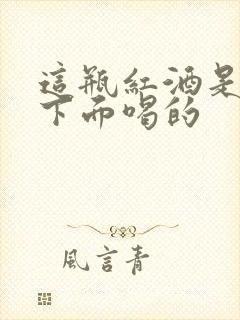 這瓶紅酒是
下而喝的
風言青